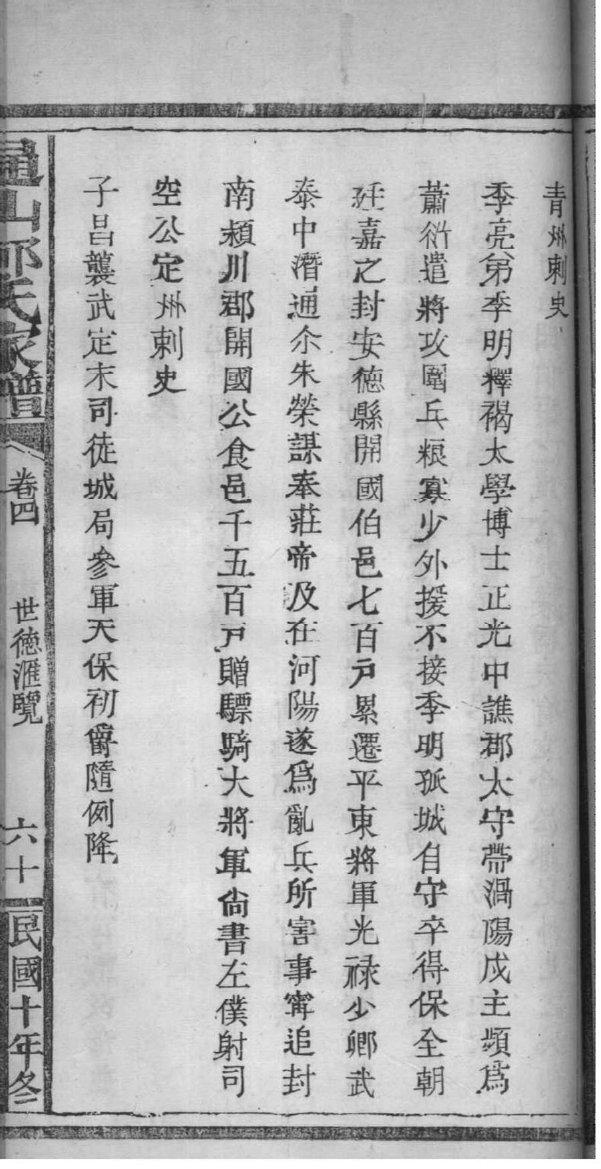 青州刺史
季亮弟季明釋褐太學博士正光中譙郡太守帶渦陽戍主頻爲
蕭衍遣將攻圍兵粮寡少外援不接季明孤城自守卒得保全朝
廷嘉之封安德縣開國伯邑七百戸累遷平東將軍光祿少卿武
泰中潛通尒朱榮謀奉莊帝及在河陽遂爲亂兵所害事寧追封
南潁川郡開國公食邑千五百戸贈驃騎大將軍尙書左僕射司
空公定州刺史
子昌襲武定末司徒城局參軍天保初爵隨例降
山邢氏家譜
卷四
世德滙覽
六十
民國十年冬